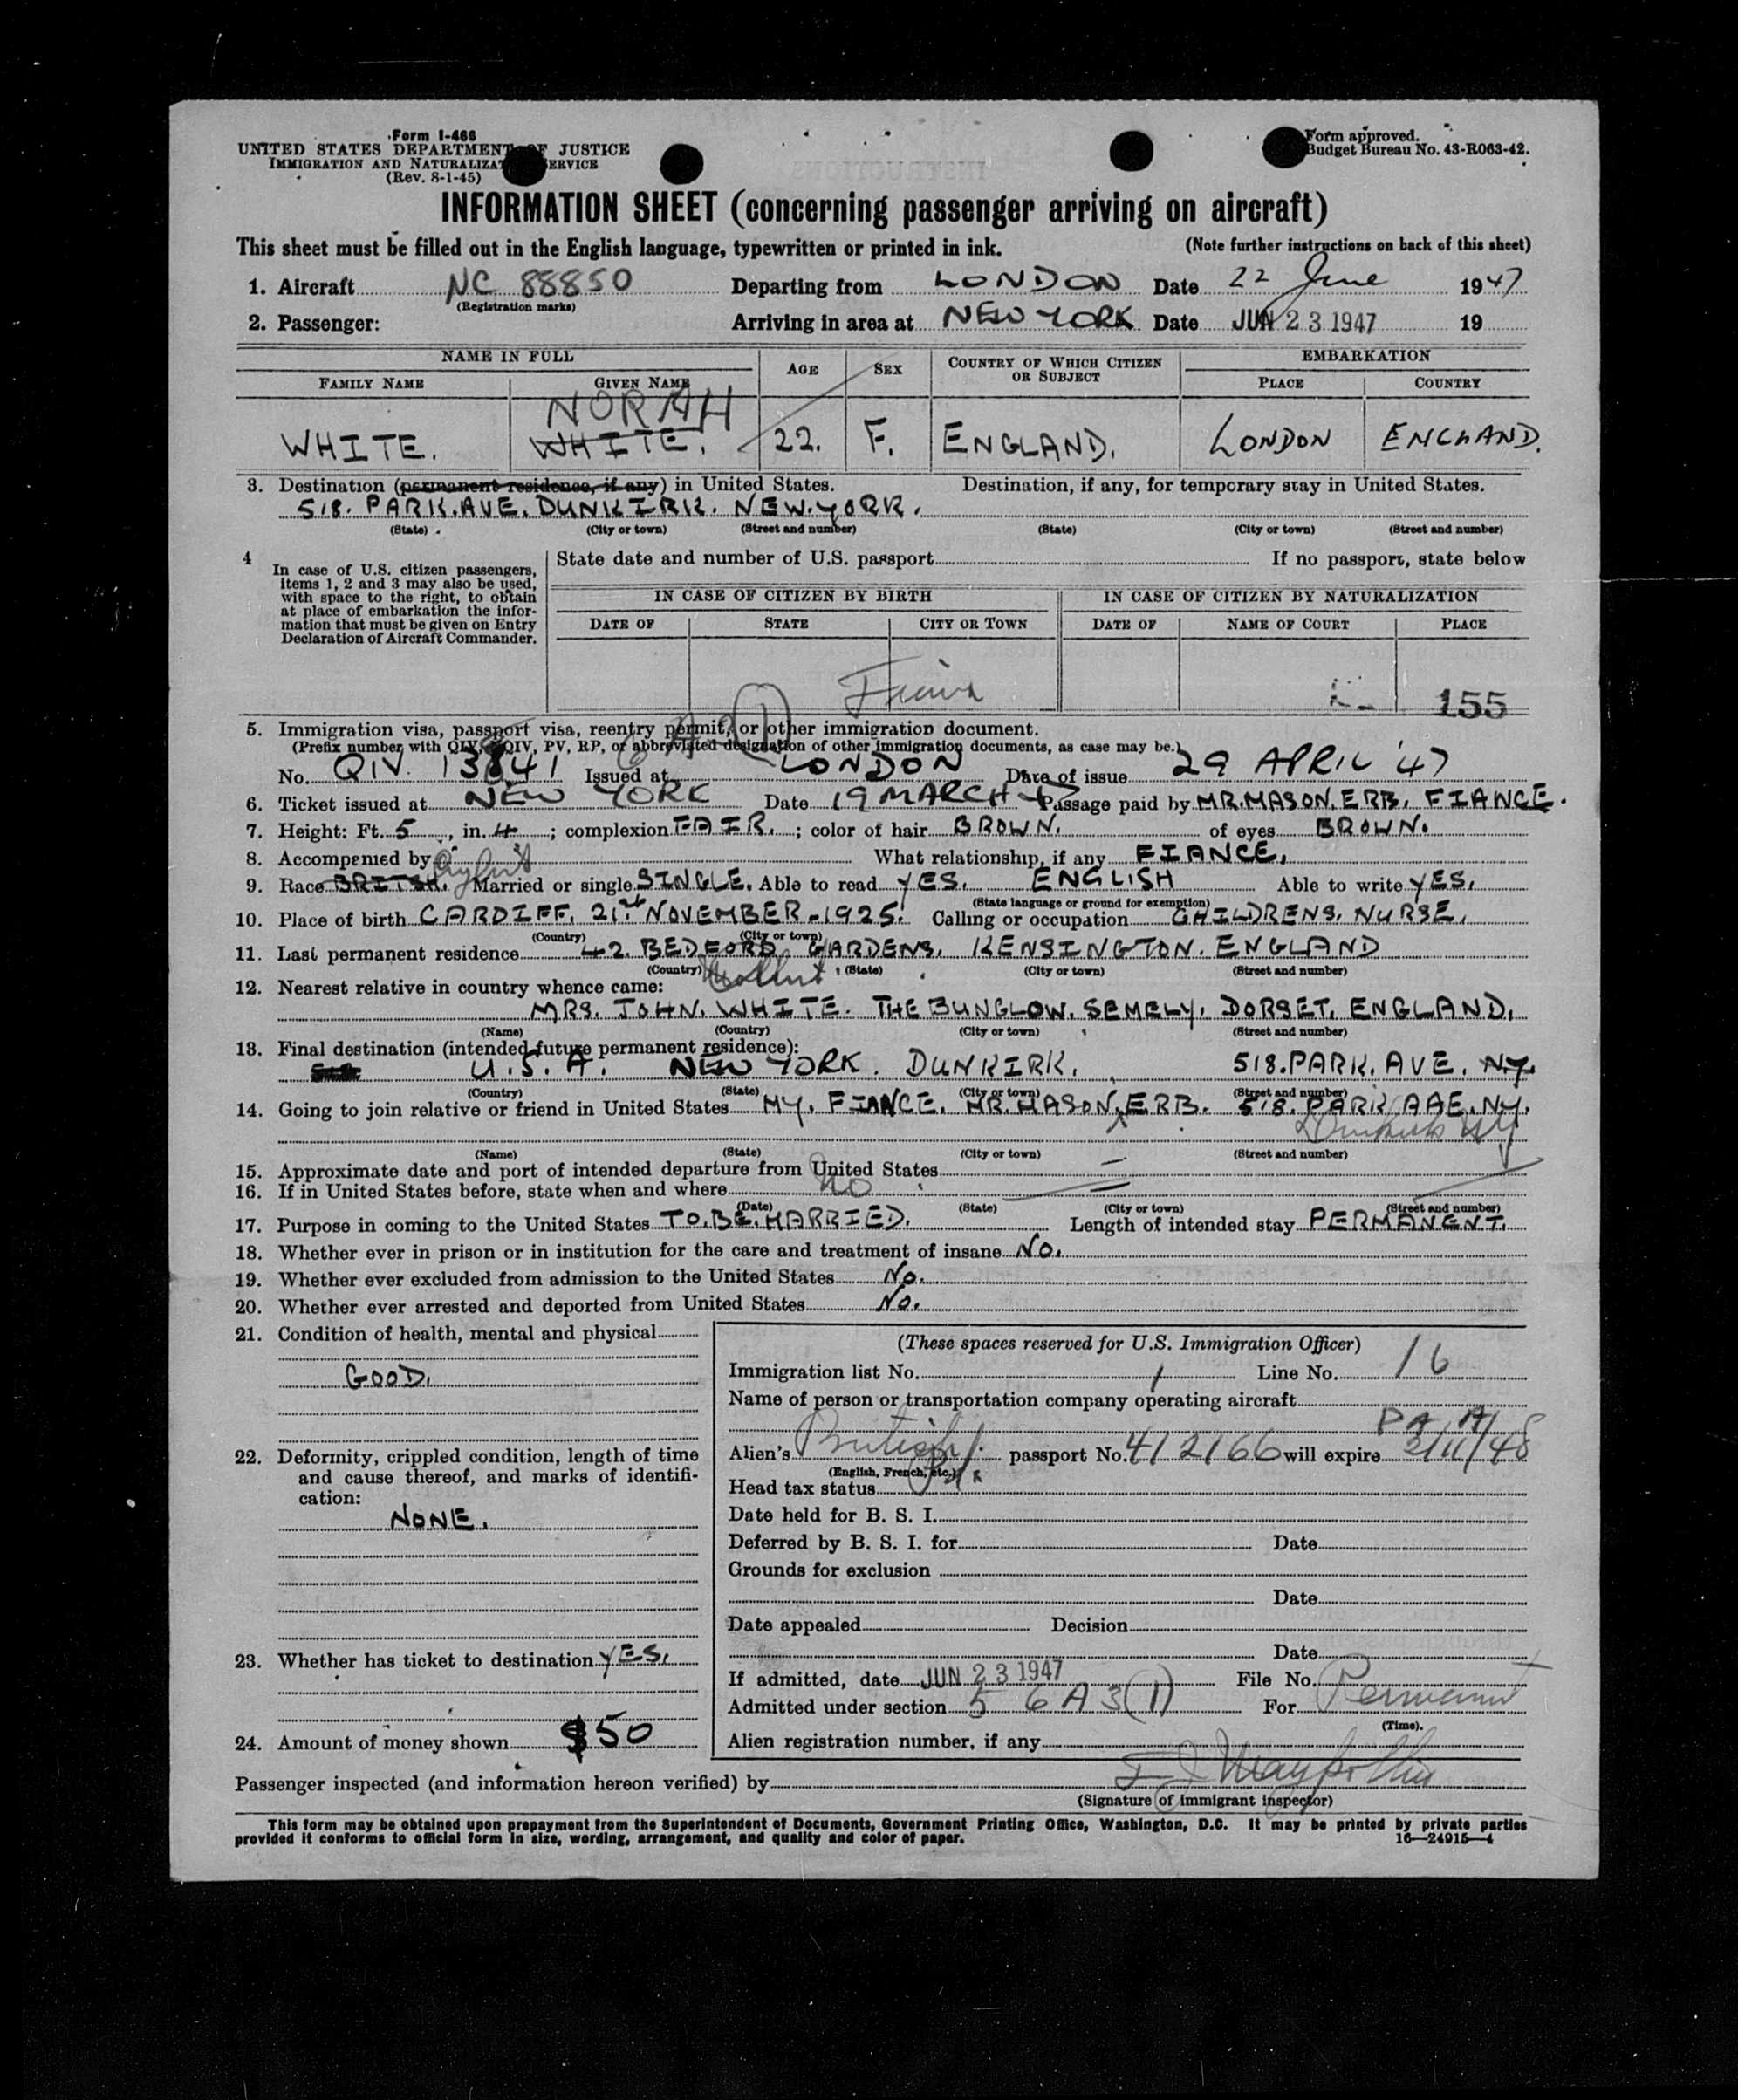 Form I-466
UNITED STATES DEPARTMENT OF JUSTICE
IMMIGRATION AND NATURALIZATION SERVICE
(Rev. 8-1-45)
Form approved.
Budget Bureau No. 43-R063-42.
INFORMATION SHEET (concerning passenger arriving on aircraft)
This sheet must be filled out in the English language, typewritten or printed in ink. (Note further instructions on back of this sheet)
1. Aircraft NC 88850 Departing from LONDON Date 22 June 1947
(Registration marks)
2. Passenger: Arriving in area at NEW YORK Date JUN 23 1947 19
NAME IN FULL AGE SEX COUNTRY OF WHICH CITIZEN OR SUBJECT EMBARKATION
FAMILY NAME GIVEN NAME PLACE COUNTRY
NORAH
WHITE. WHITE. 22. F. ENGLAND. LONDON ENGLAND.
3. Destination (permanent residence, if any) in United States. Destination, if any, for temporary stay in United States.
518. PARK. AVE. DUNKIRK. NEW. YORK.
(State) (City or town) (Street and number) (State) (City or town) (Street and number)
4 In case of U.S. citizen passengers, items 1, 2 and 3 may also be used, with space to the right, to obtain at place of embarkation the information that must be given on Entry Declaration of Aircraft Commander.
State date and number of U.S. passport If no passport, state below
IN CASE OF CITIZEN BY BIRTH IN CASE OF CITIZEN BY NATURALIZATION
DATE OF STATE CITY OR TOWN DATE OF NAME OF COURT PLACE
155
5. Immigration visa, passport visa, reentry permit, or other immigration document.
(Prefix number with QIV, NQIV, PV, RP, or abbreviated designation of other immigration documents, as case may be.)
No. QIV. 13841 Issued at LONDON Date of issue 29 APRIL '47
6. Ticket issued at NEW YORK Date 19 MARCH Passage paid by MR. MASON. ERB. FIANCE.
7. Height: Ft. 5, in. 4; complexion FAIR.; color of hair BROWN. of eyes BROWN.
8. Accompanied by What relationship, if any FIANCE.
9. Race BRITSH. Married or single SINGLE. Able to read YES. ENGLISH Able to write YES.
(State language or ground for exemption)
10. Place of birth CARDIFF. 21st NOVEMBER-1925. Calling or occupation CHILDRENS. NURSE.
(Country) (City or town)
11. Last permanent residence 42. BEDFORD GARDENS. KENSINGTON. ENGLAND
(Country) (State) (City or town) (Street and number)
12. Nearest relative in country whence came:
MRS. JOHN. WHITE. THE BUNGLOW. SEMELY. DORSET. ENGLAND.
(Name) (Country) (City or town) (Street and number)
13. Final destination (intended future permanent residence):
U.S.A. NEW YORK. DUNKIRK. 518. PARK. AVE. N.Y.
(Country) (State) (City or town) (Street and number)
14. Going to join relative or friend in United States MY. FIANCE. MR. MASON. ERB. 518. PARK AAE. N.Y.
Dunkirk NY
(Name) (State) (City or town) (Street and number)
15. Approximate date and port of intended departure from United States
16. If in United States before, state when and where No
(Date) (State) (City or town) (Street and number)
17. Purpose in coming to the United States TO. BE. MARRIED. Length of intended stay PERMANENT.
18. Whether ever in prison or in institution for the care and treatment of insane No.
19. Whether ever excluded from admission to the United States No.
20. Whether ever arrested and deported from United States No.
21. Condition of health, mental and physical
GOOD.
22. Deformity, crippled condition, length of time and cause thereof, and marks of identification:
NONE.
23. Whether has ticket to destination YES.
24. Amount of money shown $50
(These spaces reserved for U.S. Immigration Officer)
Immigration list No. 1 Line No. 16
Name of person or transportation company operating aircraft
P A A
Alien's British passport No. 412166 will expire 2/11/48
(English, French, etc.)
Head tax status
Date held for B. S. I.
Deferred by B. S. I. for Date
Grounds for exclusion
Date
Date appealed Decision
Date
If admitted, date JUN 23 1947 File No.
Admitted under section 5 6 A 3 (1) For Permanent
(Time).
Alien registration number, if any
Passenger inspected (and information hereon verified) by
(Signature of immigrant inspector)
This form may be obtained upon prepayment from the Superintendent of Documents, Government Printing Office, Washington, D.C. It may be printed by private parties
provided it conforms to official form in size, wording, arrangement, and quality and color of paper. 16—24915—4